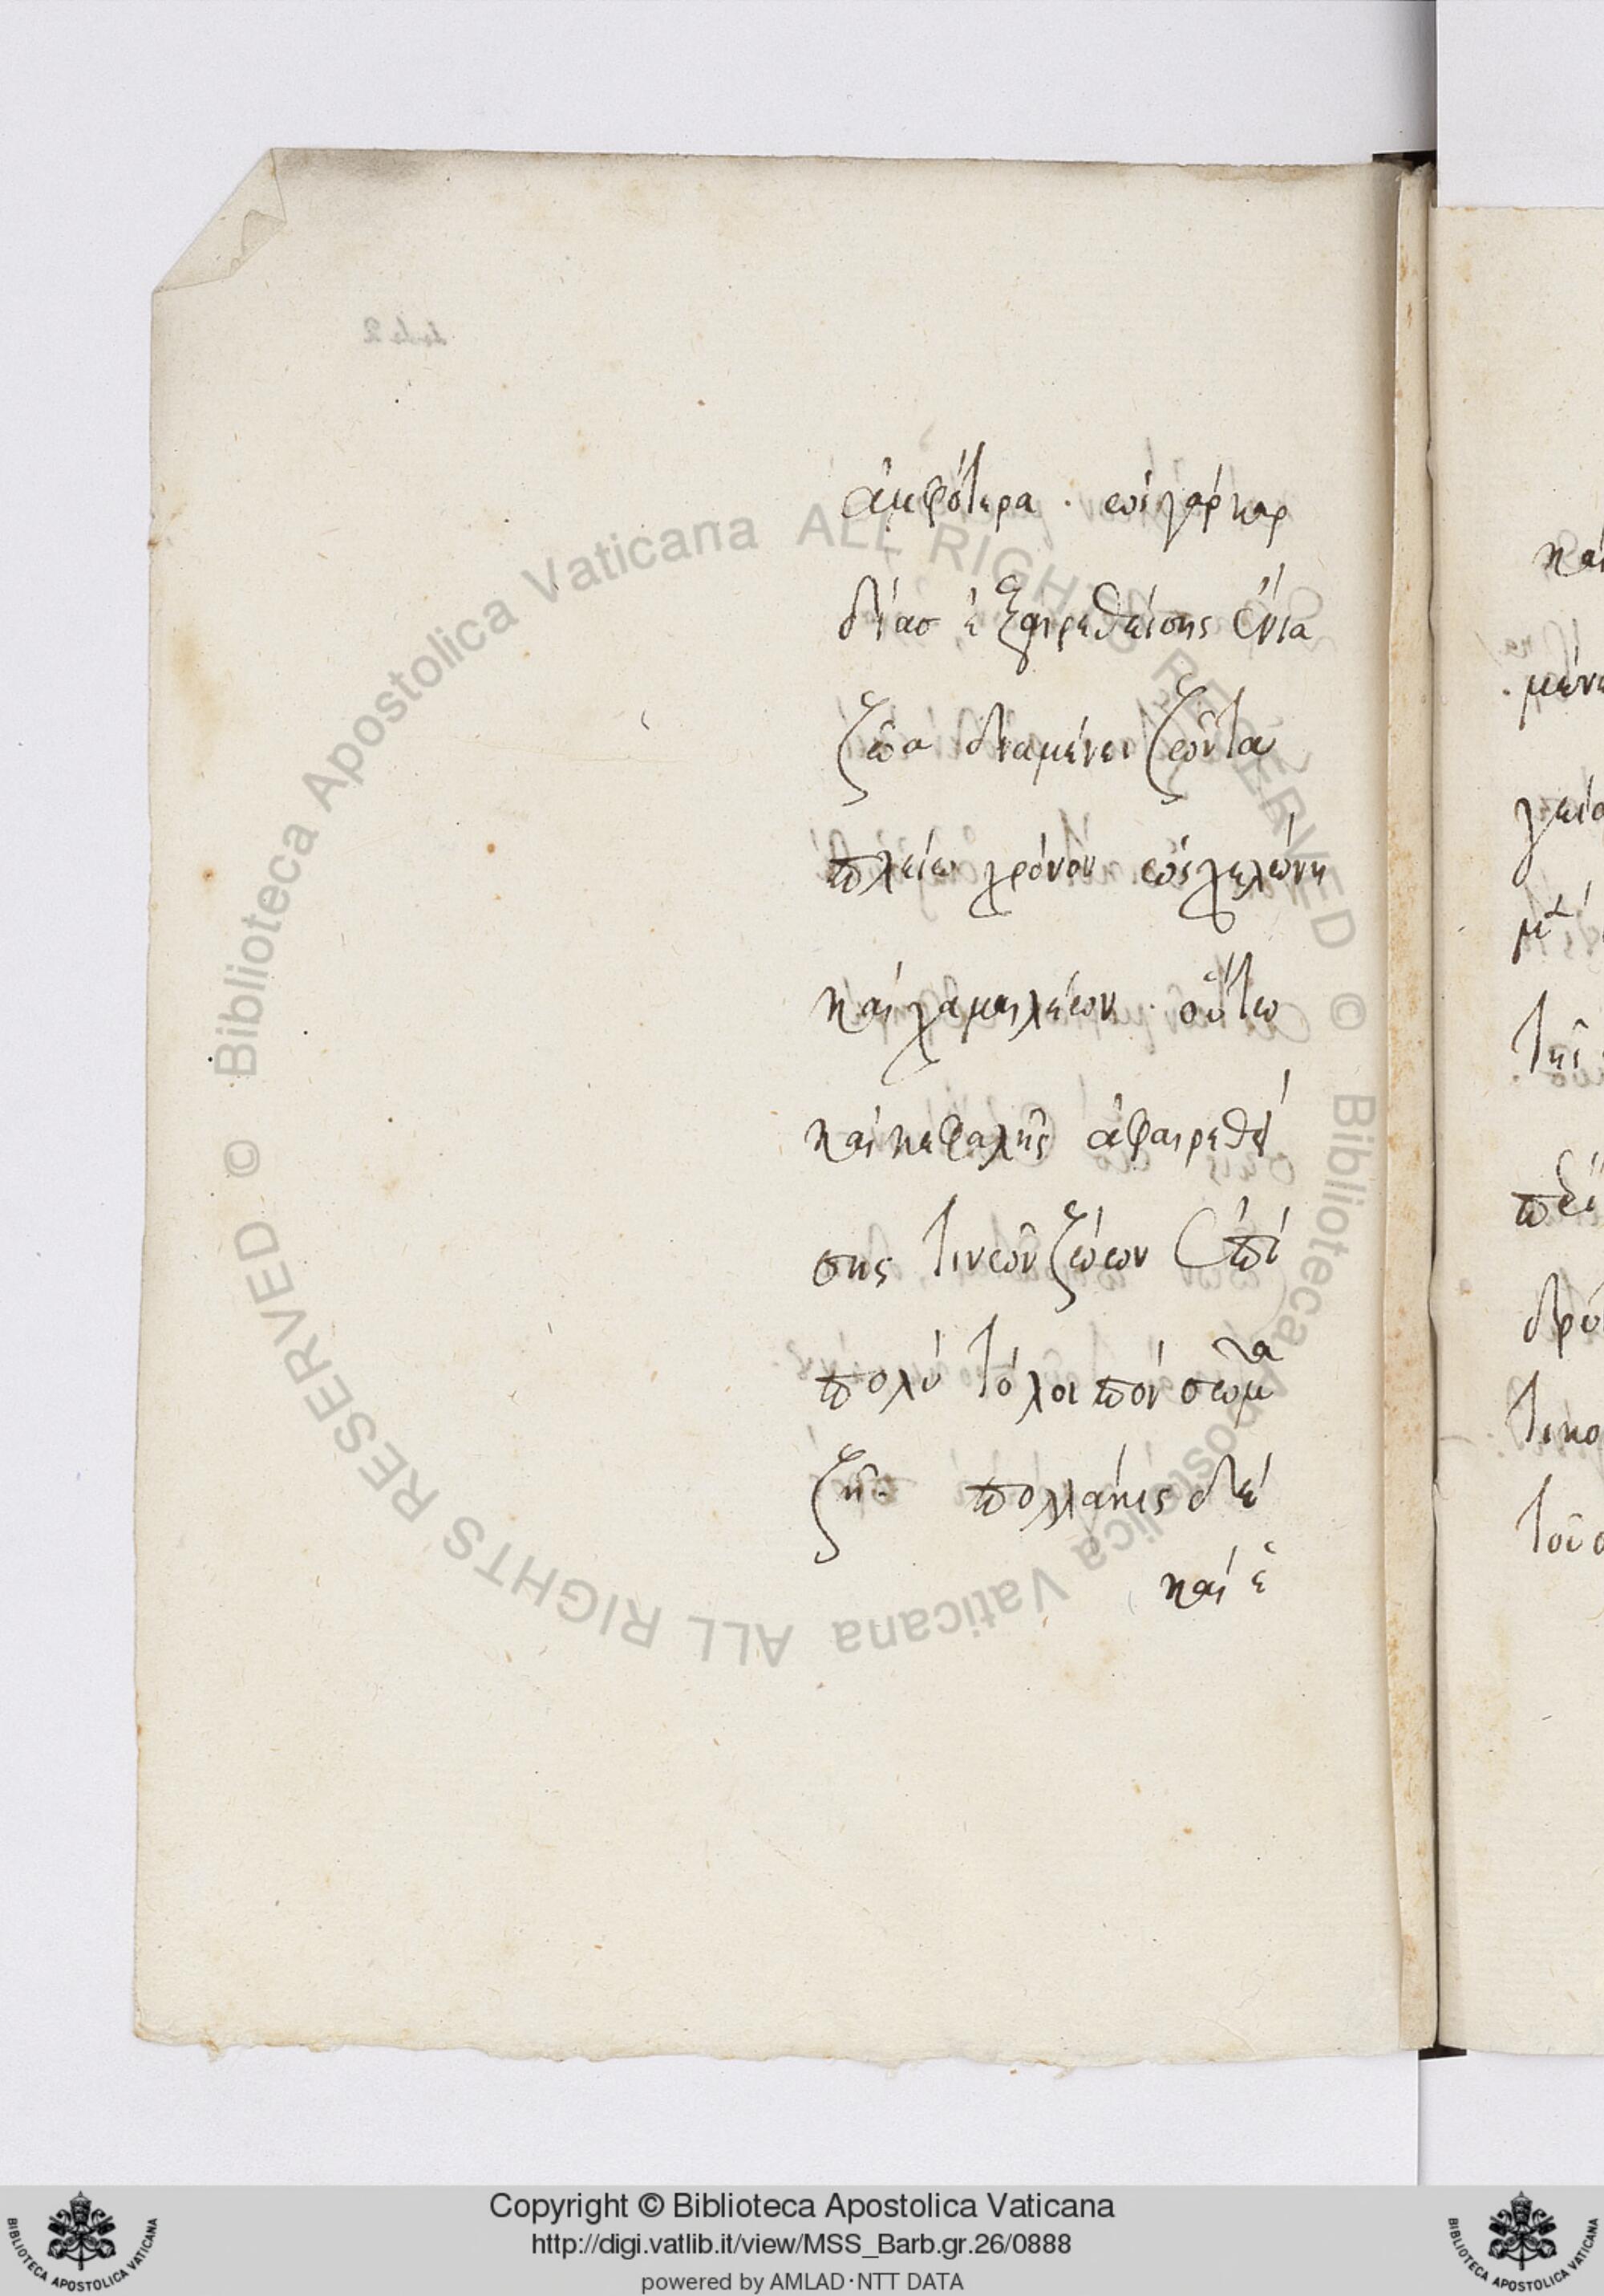 ἀμφότερα · ὡς γὰρ καρ
δίασ ἐξαιρεθείσης ἔνια
ζῶα διαμένει ζῶντα
πλείω χρόνον ὡς χελώνη
καὶ χαμαιλέων · οὕτω
καὶ κεφαλῆς ἀφαιρεθεί
σης τινῶν ζώων ἐπὶ
πολὺ τὸ λοιπὸν σῶμα
ζῆ. πολλάκις δὲ
καὶ ἐ
καὶ
μένε
τῆς
δρύ
τικο
τοῦ
© Biblioteca Apostolica Vaticana ALL RIGHTS RESERVED © Biblioteca Apostolica Vaticana ALL RIGHTS RESERVED
Copyright © Biblioteca Apostolica Vaticana
http://digi.vatlib.it/view/MSS_Barb.gr.26/0888
powered by AMLAD·NTT DATA
BIBLIOTECA APOSTOLICA VATICANA
BIBLIOTECA APOSTOLICA VATICANA